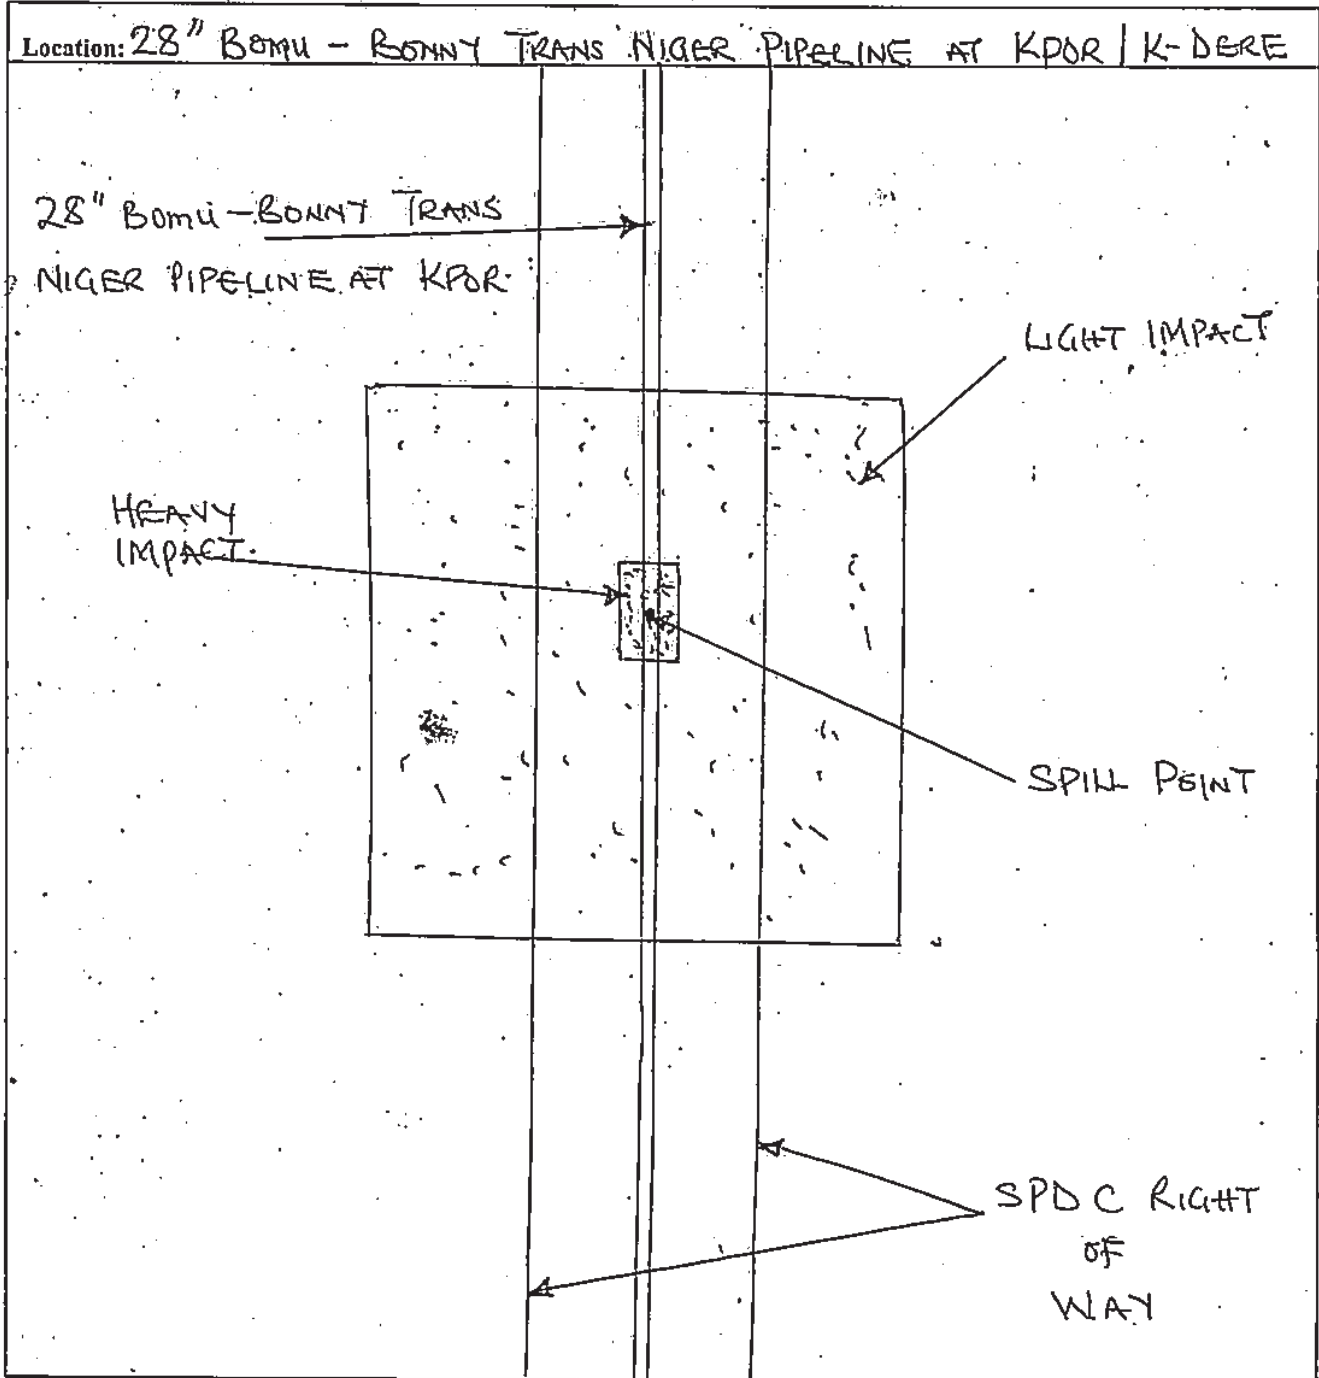 Location: 28" BOMU - BONNY TRANS NIGER PIPELINE AT KPOR / K-DERE
28" BOMU - BONNY TRANS
NIGER PIPELINE AT KPOR
LIGHT IMPACT
HEAVY
IMPACT
SPILL POINT
SPDC RIGHT
OF
WAY